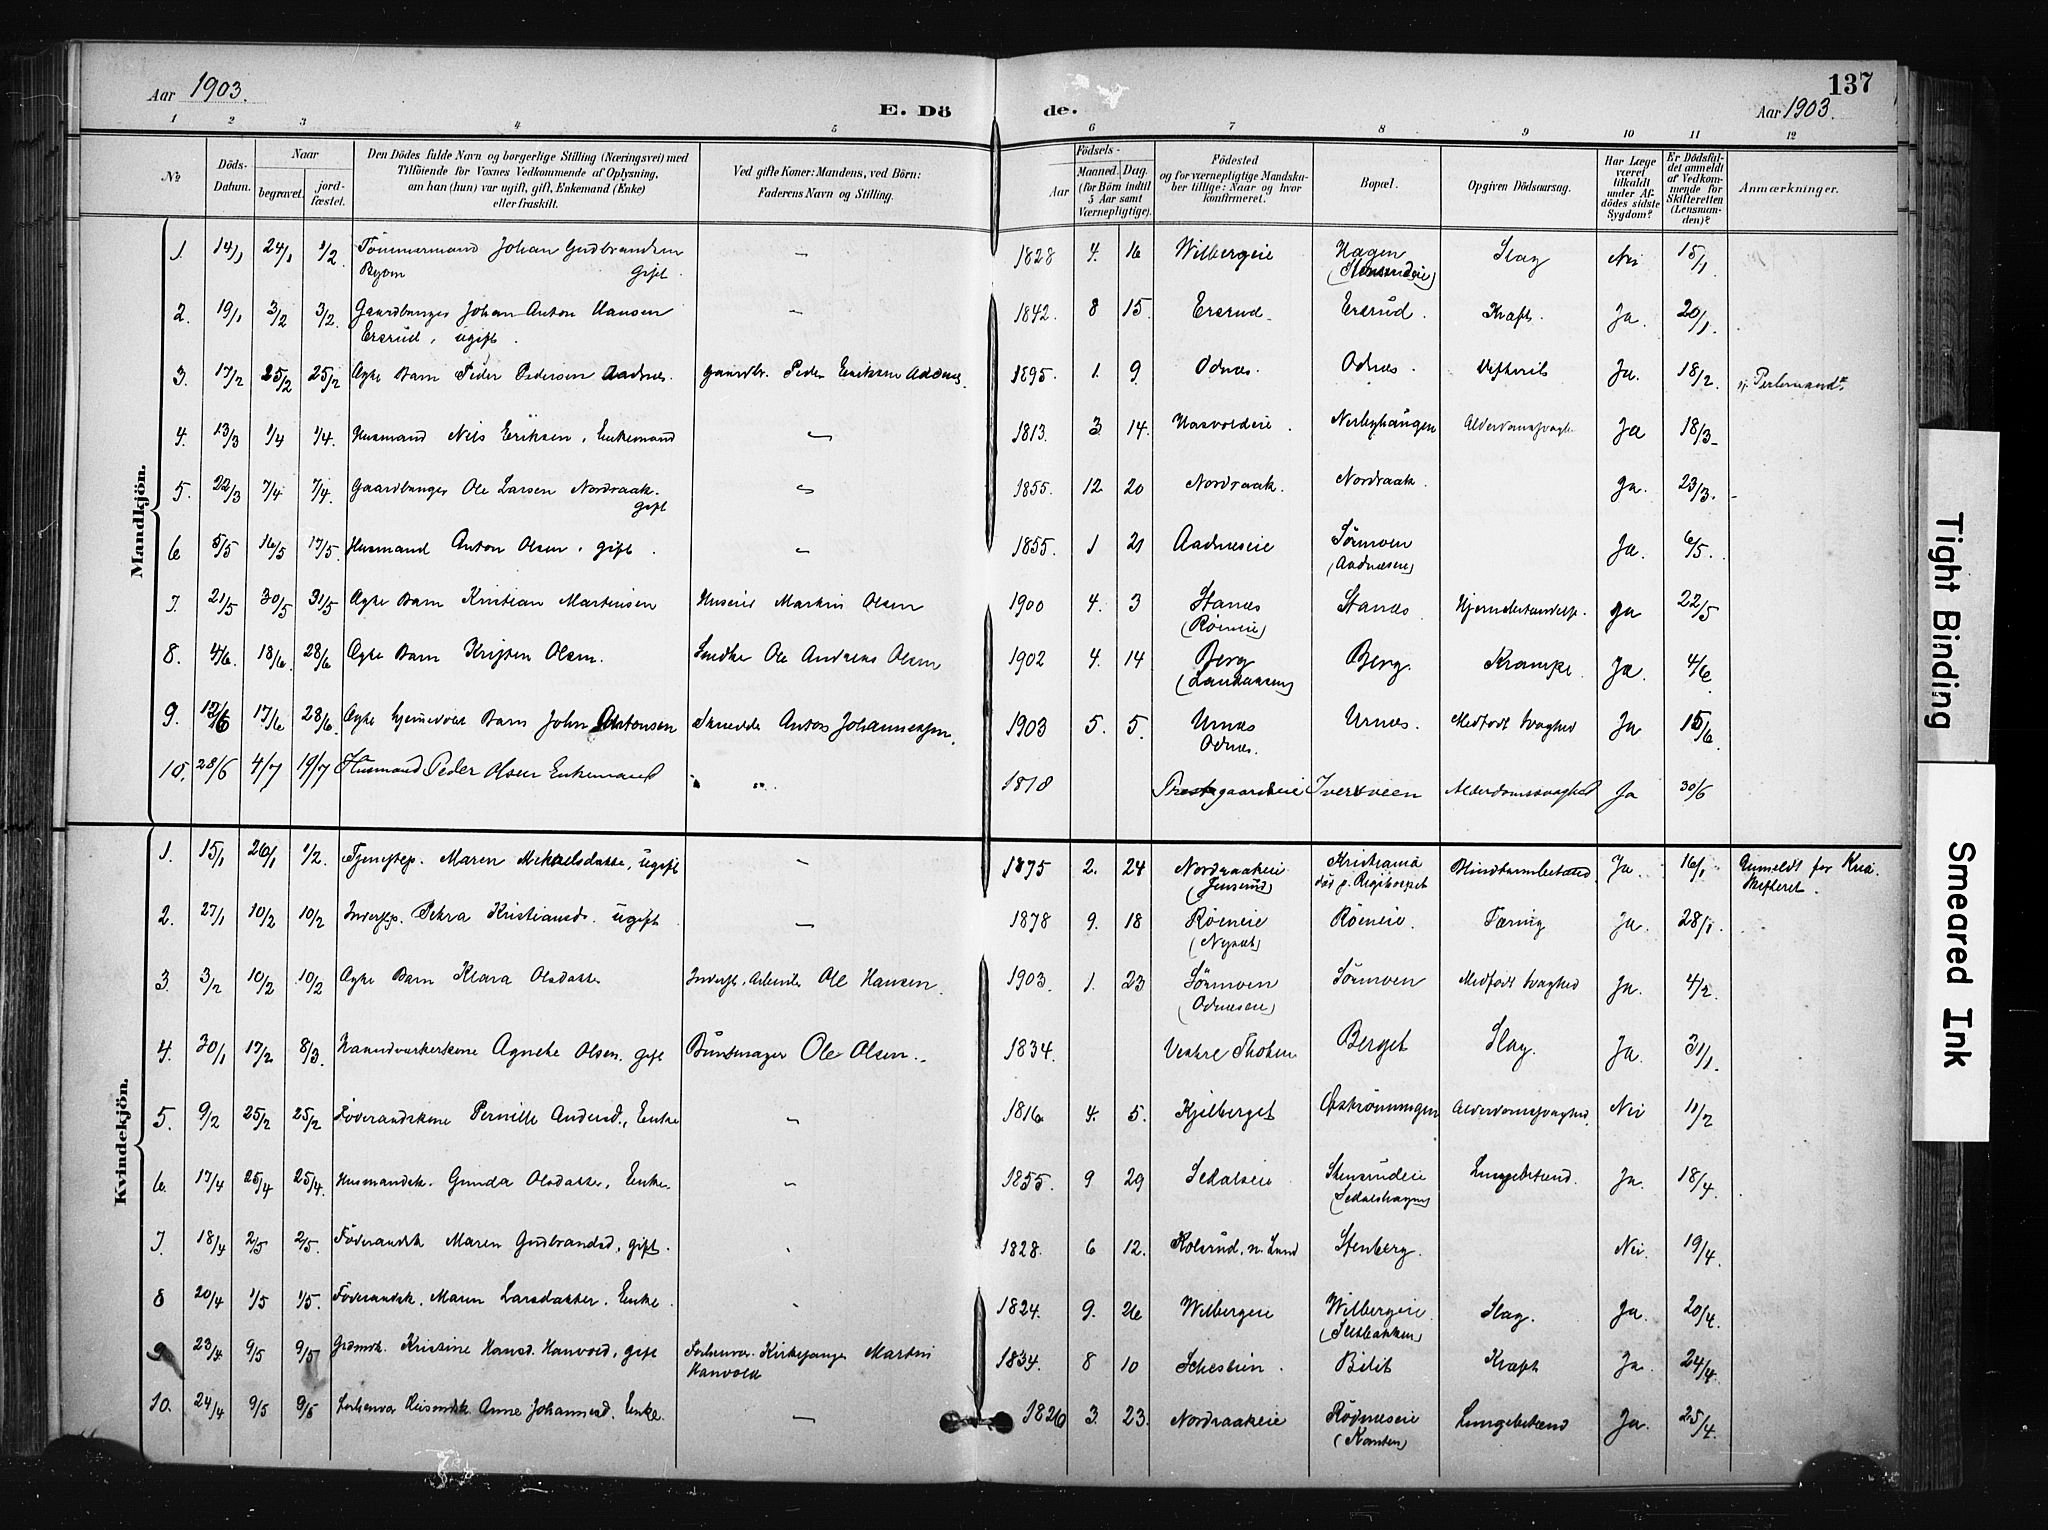 Aar 1903.
E. Dö
de.
Aar 1903.
137
1 2 3 4 5 6 7 8 9 10 11 12
№
Döds-
Datum.
Naar
begravet.
jord-
fæstet.
Den Dödes fulde Navn og borgerlige Stilling (Næringsvei) med
Tilföiende for Voxnes Vedkommende af Oplysning,
om han (hun) var ugift, gift, Enkemand (Enke)
eller fraskilt.
Ved gifte Koner: Mandens, ved Börn:
Faderens Navn og Stilling.
Födsels-
Aar
Maaned. Dag.
(for Börn indtil
5 Aar samt
Værnepligtige).
Födested
og for værnepligtige Mandska-
ber tillige: Naar og hvor
konfirmeret.
Bopæl.
Opgiven Dödsaarsag.
Har Læge
været
tilkaldt
under Af-
dödes sidste
Sygdom?
Er Dödsfal-
det anmeldt
af Vedkom-
mende for
Skifteretten
(Lensman-
den)?
Anmærkninger.
Mandkjön.
1. 14/1 24/1 1/2. Tömmermand Johan Gudbrandsen — 1828 4. 16 Wilbergeie Hagen Slag Nei 15/1
gift.
2. 19/1 3/2 3/2. Gaardbruger Johan Anton Hansen — 1842. 8 15. Ersrud. Ersrud. Kræft. Ja. 20/1.
Ersrud, ugift.
3. 17/2 25/2 25/2 Ægte Barn Peder Pedersen Aadnæs. Gaardbr. Peder Eriksen Aadnæs. 1895. 1. 9. Odnæs. Odnæs. Difterit Ja. 18/2.
4. 13/3 1/4 1/4. Husmand Nils Eriksen, Enkemand — 1813. 3. 14. Hasvoldeie. Nerbyhaugen Alderdomssvagh. Ja 18/3
5. 22/3 7/4 7/4. Gaardbruger Ole Larsen Nordraak. 1855. 12. 20 Nordraak. Nordraak. Ja. 23/3.
gift
6 5/5 16/5 17/5 Husmand Anton Olsen, gift. — 1855. 1 21 Aadnæseie Sörmoen Ja. 6/5.
(Aadnæseie)
7. 21/5 30/5 31/5 Ægte Barn Kristian Martinsen Huseier Martin Olsen 1900 4. 3 Stanæs Stanæs Ja 22/5
(Röineie)
8. 4/6. 18/6. 28/6 Ægte Barn Kristen Olsen. Smedke Ole Andreas Olsen 1902 4. 14 Berg Berg. Krampe Ja. 4/6
9. 12/6 17/6 28/6. Ægte hjemmedöbt Barn John Antonsen Anton Johannessen. 1903 5. 5. Urnæs Urnæs. Medfödt Svaghed Ja 15/6
Odnæs.
10. 28/6 4/7 19/7 Husmand Peder Olsen Enkemand „ 1818 Prestegaardseie Iversveen Alderdomssvaghed Ja 30/6
Kvindekjön.
1. 15/1 26/1 1/2. Tjenestep. Maren Mikkelsdatter, ugift — 1875 2. 24 Nordraakeie Kristiania Blindtarmbetænd. Ja. 16/1 Anmeldt for Kria.
(Jensrud) död p. Rigshospit. Skifteret.
2. 27/1 10/2 10/2 Inderstp. Petra Kristiansd. ugift — 1878 9. 18 Röineie Röineie. Tæring Ja. 28/1.
3. 3/2 10/2 10/2 Ægte Barn Klara Olsdatter Inderst, Arbeider Ole Hansen. 1903. 1. 23 Sörmoen Sörmoen Medfödt Svaghed Ja. 4/2.
(Odnæseie)
4. 30/1 17/2 8/3. Haandverkerskone Agnethe Olsen. gift Buntmager Ole Olsen. 1834. Vestre Thoten Berget Slag. Ja. 31/1.
5. 9/2 25/2 25/2 Föderaadskone Pernille Andersd., Enke — 1816. 4. 5. Kjelberget Alderdomssvaghed. Nei 11/2
6. 17/4 25/4 25/4. Husmandsk. Gunda Olsdatter, Enke. — 1855. 9 29 Sedalseie Stensrudeie Lungebetænd. Ja. 18/4.
7. 18/4 2/5 2/5. Föderaadsk Maren Gudbrandsd, gift. 1828. 6 12. Kolsrud, n. Land Stenberg. Nei. 19/4.
8 20/4 1/5 1/5. Föderaadsk. Maren Larsdatter. Enke. 1824. 9. 26 Wilbergeie Wilbergeie Slag. Ja. 20/4.
9. 23/4 9/5 9/5 Grdmdk. Kristine Hansd. Hanvold, gift Forhenvær. Kirkesanger Martin 1834. 8 10 Schestien. Bilit Kræft Ja. 24/4.
Hanvold
10. 24/4 9/5 9/5 Forhenvær Husmdk. Anne Johannesd. Enke. — 1826 3. 23. Nordraakeie Rödnæseie Lungebetænd Ja. 25/4.
(Kanten)
Tight Binding
Smeared Ink